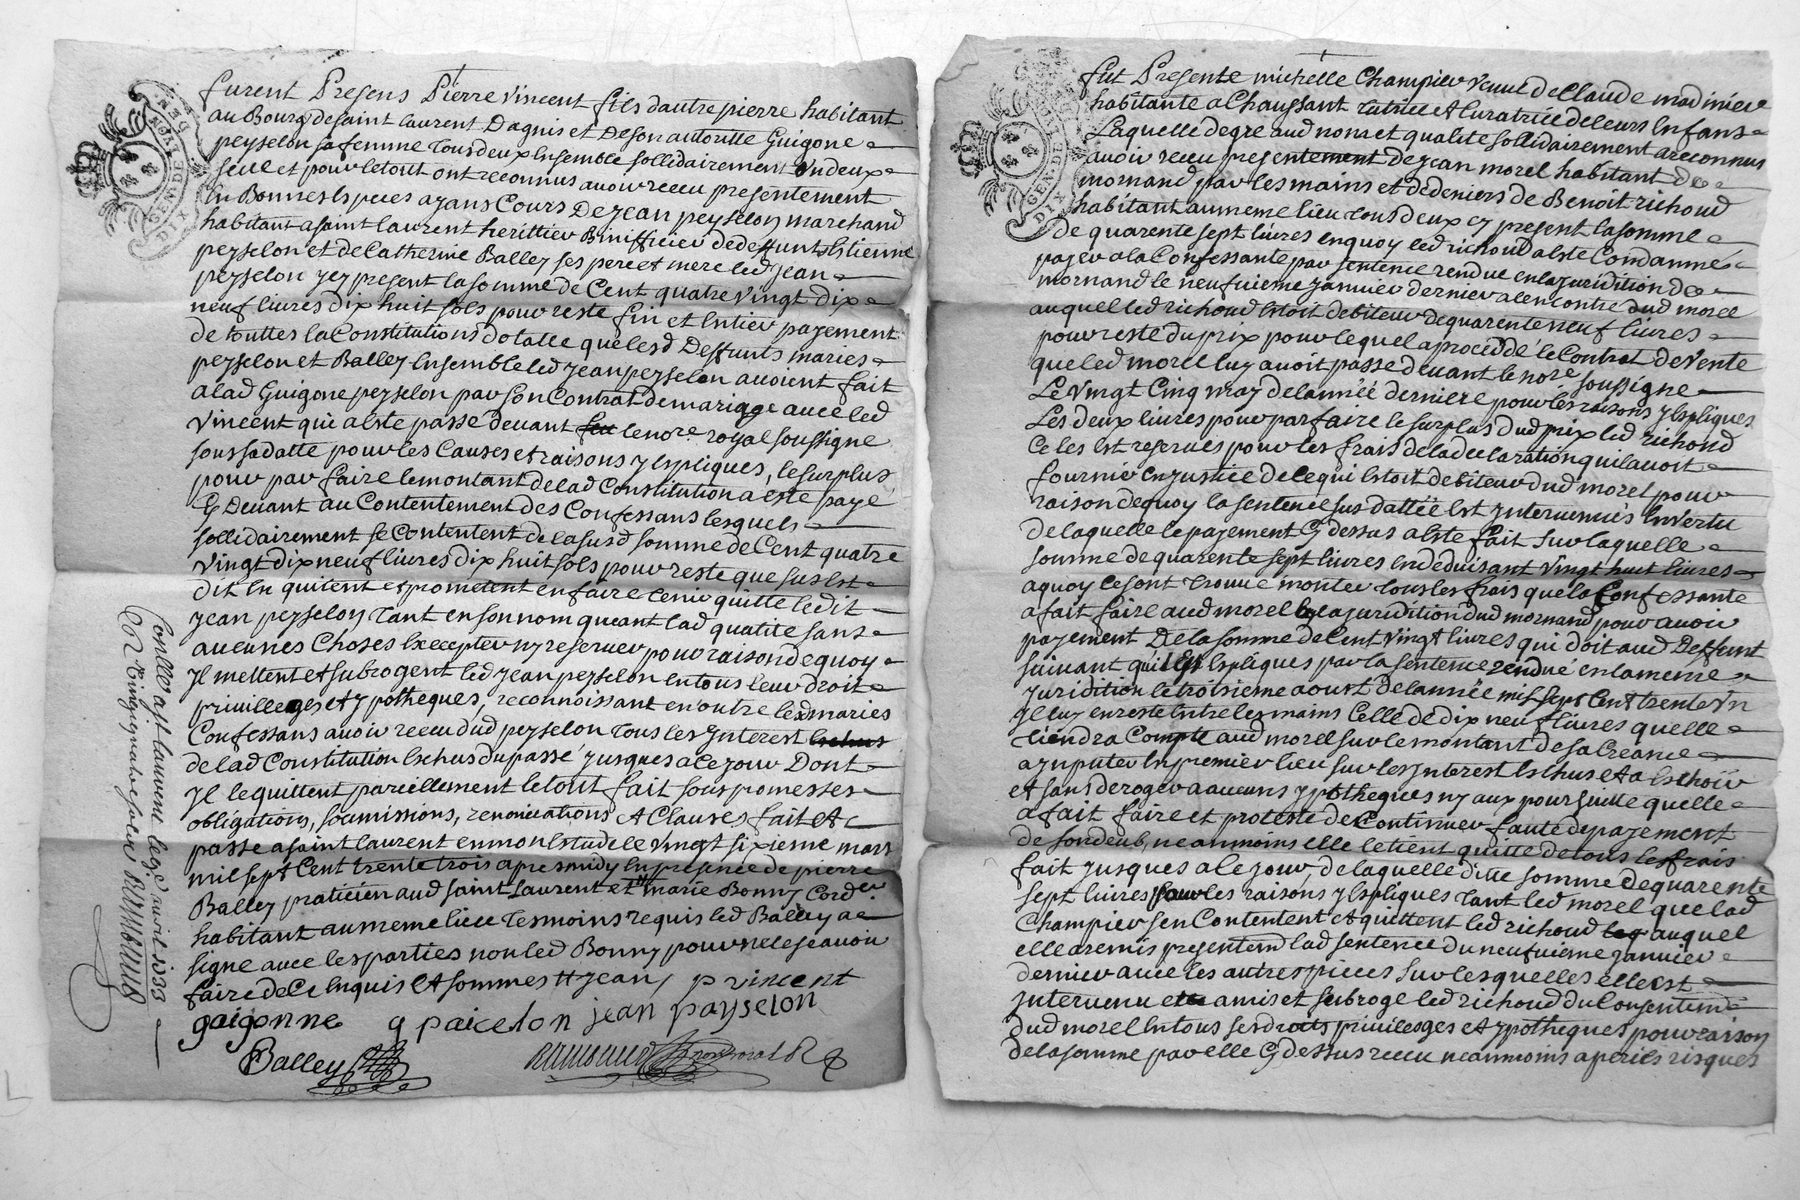 furent Presens Pierre Vincent fils dautre pierre habitant
au Bourg de saint laurent Dagnis et De son autoritte Guigone
peyselon sa femme tous deux Ensemble sollidairement Un deux
seul et pour le tout ont reconnus avoir receu presentement
En Bonnes Especes ayans Cours De jean peyselon marchand
habitant a saint laurent herittier Binifficier de deffunts Estienne
peyselon et de Catherine Balley ses pere et mere led jean
peyselon yey present la somme de Cent quatre vingt dix
neuf livres dix huit sols pour reste fin et Entier payement
de touttes la Constitutions dotalle que lesd Deffunts maries
peyselon et Balley Ensemble led jean peyselon avoient fait
a lad Guigone peyselon par son Contrat de mariage avec led
Vincent qui a este passé devant le nore royal soussigne
sous sa datte pour les Causes et raisons y Expliques, le surplus
pour par faire le montant de lad Constitution a este payé
Cy Devant au Contentement des Confessans lesquels
sollidairement se Contentent de la susd somme de Cent quatre
vingt dix neuf livres dix huit sols pour reste que sus Est
dit En quitent et prometent en faire tenir quitte ledit
jean peyselon tant en son nom queant lad qualité sans
aucunes Choses Excepter ny reserver pour raison de quoy
Il mettent et subrogent led jean peyselon En tous leur droit
privilleges et ypotheques, reconnoissant en outre lesd maries
Confessans avoir receu dud peyselon tous les Interest
de lad Constitution Eschus du passé jusques a Ce jour Dont
Il le quittent pareillement le tout fait sous promesses
obligations, soumissions, renonciations et Clauses fait et
passé a saint laurent en mon Estude le vingt sixieme mars
mil sept Cent trente trois apres midy En presence de pierre
Balley praticien aud saint Laurent et marie Bonny Cord.er
habitant au meme lieu tesmoins requis led Balley a
signé avec les parties non led Bonny pour ne le scavoir
faire de Ce Enquis et sommes ## jean p vincent
guigonne g paicelon jean payselon
Balley
Conllé a st laurent le 9e avril 1733
fut Presente michelle Champier Veuve de Claude madinier
habitante a Chaussant tutrice et Curatrice de leurs Enfans
Laquelle de gré aud nom et qualité sollidairement a reconnus
avoir receu presentement de jean morel habitant de
mornand par les mains et de deniers de Benoit richoud
habitant au meme lieu tous deux cy present la somme
de quarente sept livres en quoy led richoud a este Condamné
payer a la Confessante par sentence rendue en la juridition de
mornand le neufuieme janvier dernier a lencontre dud morel
auquel led richoud Estoit debiteur de quarente neuf livres
pour reste du prix pour lequel a procédé le Contrat de Vente
que led morel luy avoit passé devant le nore soussigné
Le vingt Cinq may de lannéé derniere pour les raisons y Expliques
Les deux livres pour par faire le surplus dud prix led richoud
Ce les Est reservés pour les frais de la declaration quil avoit
fournir En justice de Ce qui Estoit debiteur dud morel pour
raison de quoy la sentence sus dattéé Est Intervenués En vertu
de laquelle le payement Cy dessus a Esté fait sur laquelle
somme de quarente sept livres en deduisant vingt huit livres
a quoy Ce sont trouvé monter tous les frais que la Confessante
a fait faire aud morel la juridition dud mornand pour avoir
payement De la somme de Cent vingt livres qui doit aud Deffunt
suivant qui Est Expliques par la sentence rendué en la meme
juridition le troisieme aoust de lannéé mil sept Cent trente Un
Il luy en reste Entre les mains Celle de dix neuf livres quelle
tiendra Compte aud morel sur le montant de sa Creance
a Imputer En premier lieu sur les Interest Eschus et a Eschoir
et sans deroger a aucuns ypotheques ny aux poursuitte quelle
a fait faire et proteste de Continuer faute de payement
de son deub, neanmoins elle le tient quitte de tous les frais
fait jusques a Ce jour, de laquelle ditte somme de quarente
sept livres pour les raisons y Expliques tant led morel que lad
Champier sen Contentent et quittent led richoud auquel
elle a remis presentemt lad sentence du neufuieme janvier
dernier avec les autres pieces sur lesquelles elle est
Intervenu a mis et subrogé led richoud du Consentemt
dud morel En tous ses droits privileges et ypotheques pour raison
de la somme par elle Cy dessus receu neanmoins a perils risques